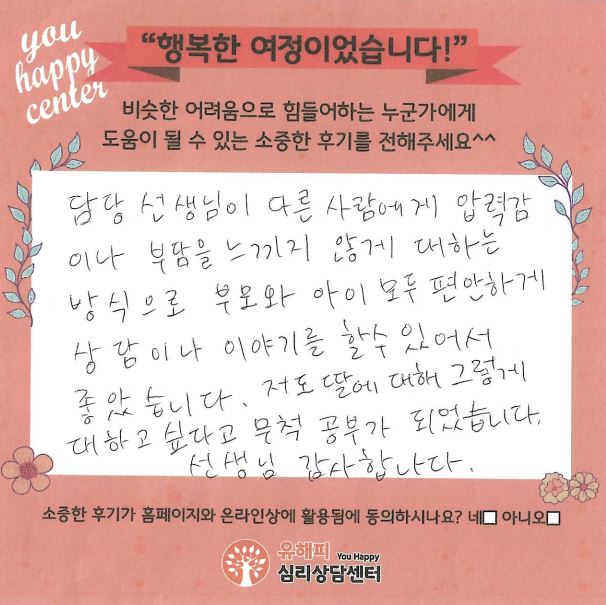 you
happy
center
“행복한 여정이었습니다!”
비슷한 어려움으로 힘들어하는 누군가에게
도움이 될 수 있는 소중한 후기를 전해주세요^^
담당 선생님이 다른 사람에게 압력감
이나 부담을 느끼지 않게 대하는
방식으로 부모와 아이 모두 편안하게
상담이나 이야기를 할수 있어서
좋았습니다. 저도 딸에 대해 그렇게
대하고 싶다고 무척 공부가 되었습니다.
선생님 감사합니다.
소중한 후기가 홈페이지와 온라인상에 활용됨에 동의하시나요? 네□ 아니오□
유해피 You Happy
심리상담센터